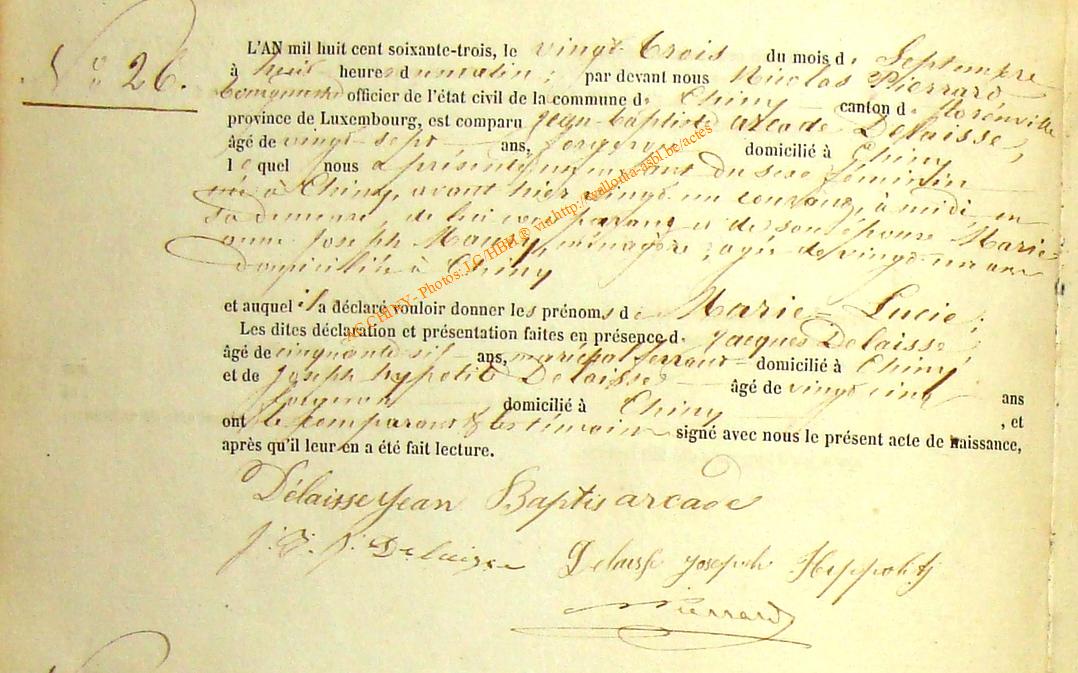 N° 26.
L'AN mil huit cent soixante-trois, le vingt-trois du mois de Septembre
à huit heures du matin ; par devant nous Nicolas Pierrard
Bourgmestre officier de l'état civil de la commune de Chiny canton de florenville
province de Luxembourg, est comparu Jean-Baptiste arcade Delaisse,
âgé de vingt-sept ans, forgeron domicilié à Chiny
lequel nous a présenté un enfant du sexe féminin
née à Chiny, avant hier, vingt un courant, à midi, en
sa demeure, de lui comparant et de son épouse Marie-
anne Joseph ménagère, agée de vingt-un ans
domiciliée à Chiny
et auquel il a déclaré vouloir donner les prénoms de Marie-Lucie ;
Les dites déclaration et présentation faites en présence de Jacques Delaisse,
âgé de cinquante-six ans, maréchal ferrant domicilié à Chiny
et de Joseph hypolite Delaisse âgé de vingt cinq ans
domicilié à Chiny , et
ont le comparant & les témoins signé avec nous le présent acte de naissance,
après qu'il leur en a été fait lecture.
Délaisse Jean Baptis arcade
J. J. J. Delaisse Delaisse Joseph Hippolyt
Pierrard
AC CHINY - Photos: J.C/HBH® via http://wallonia-asbl.be/actes